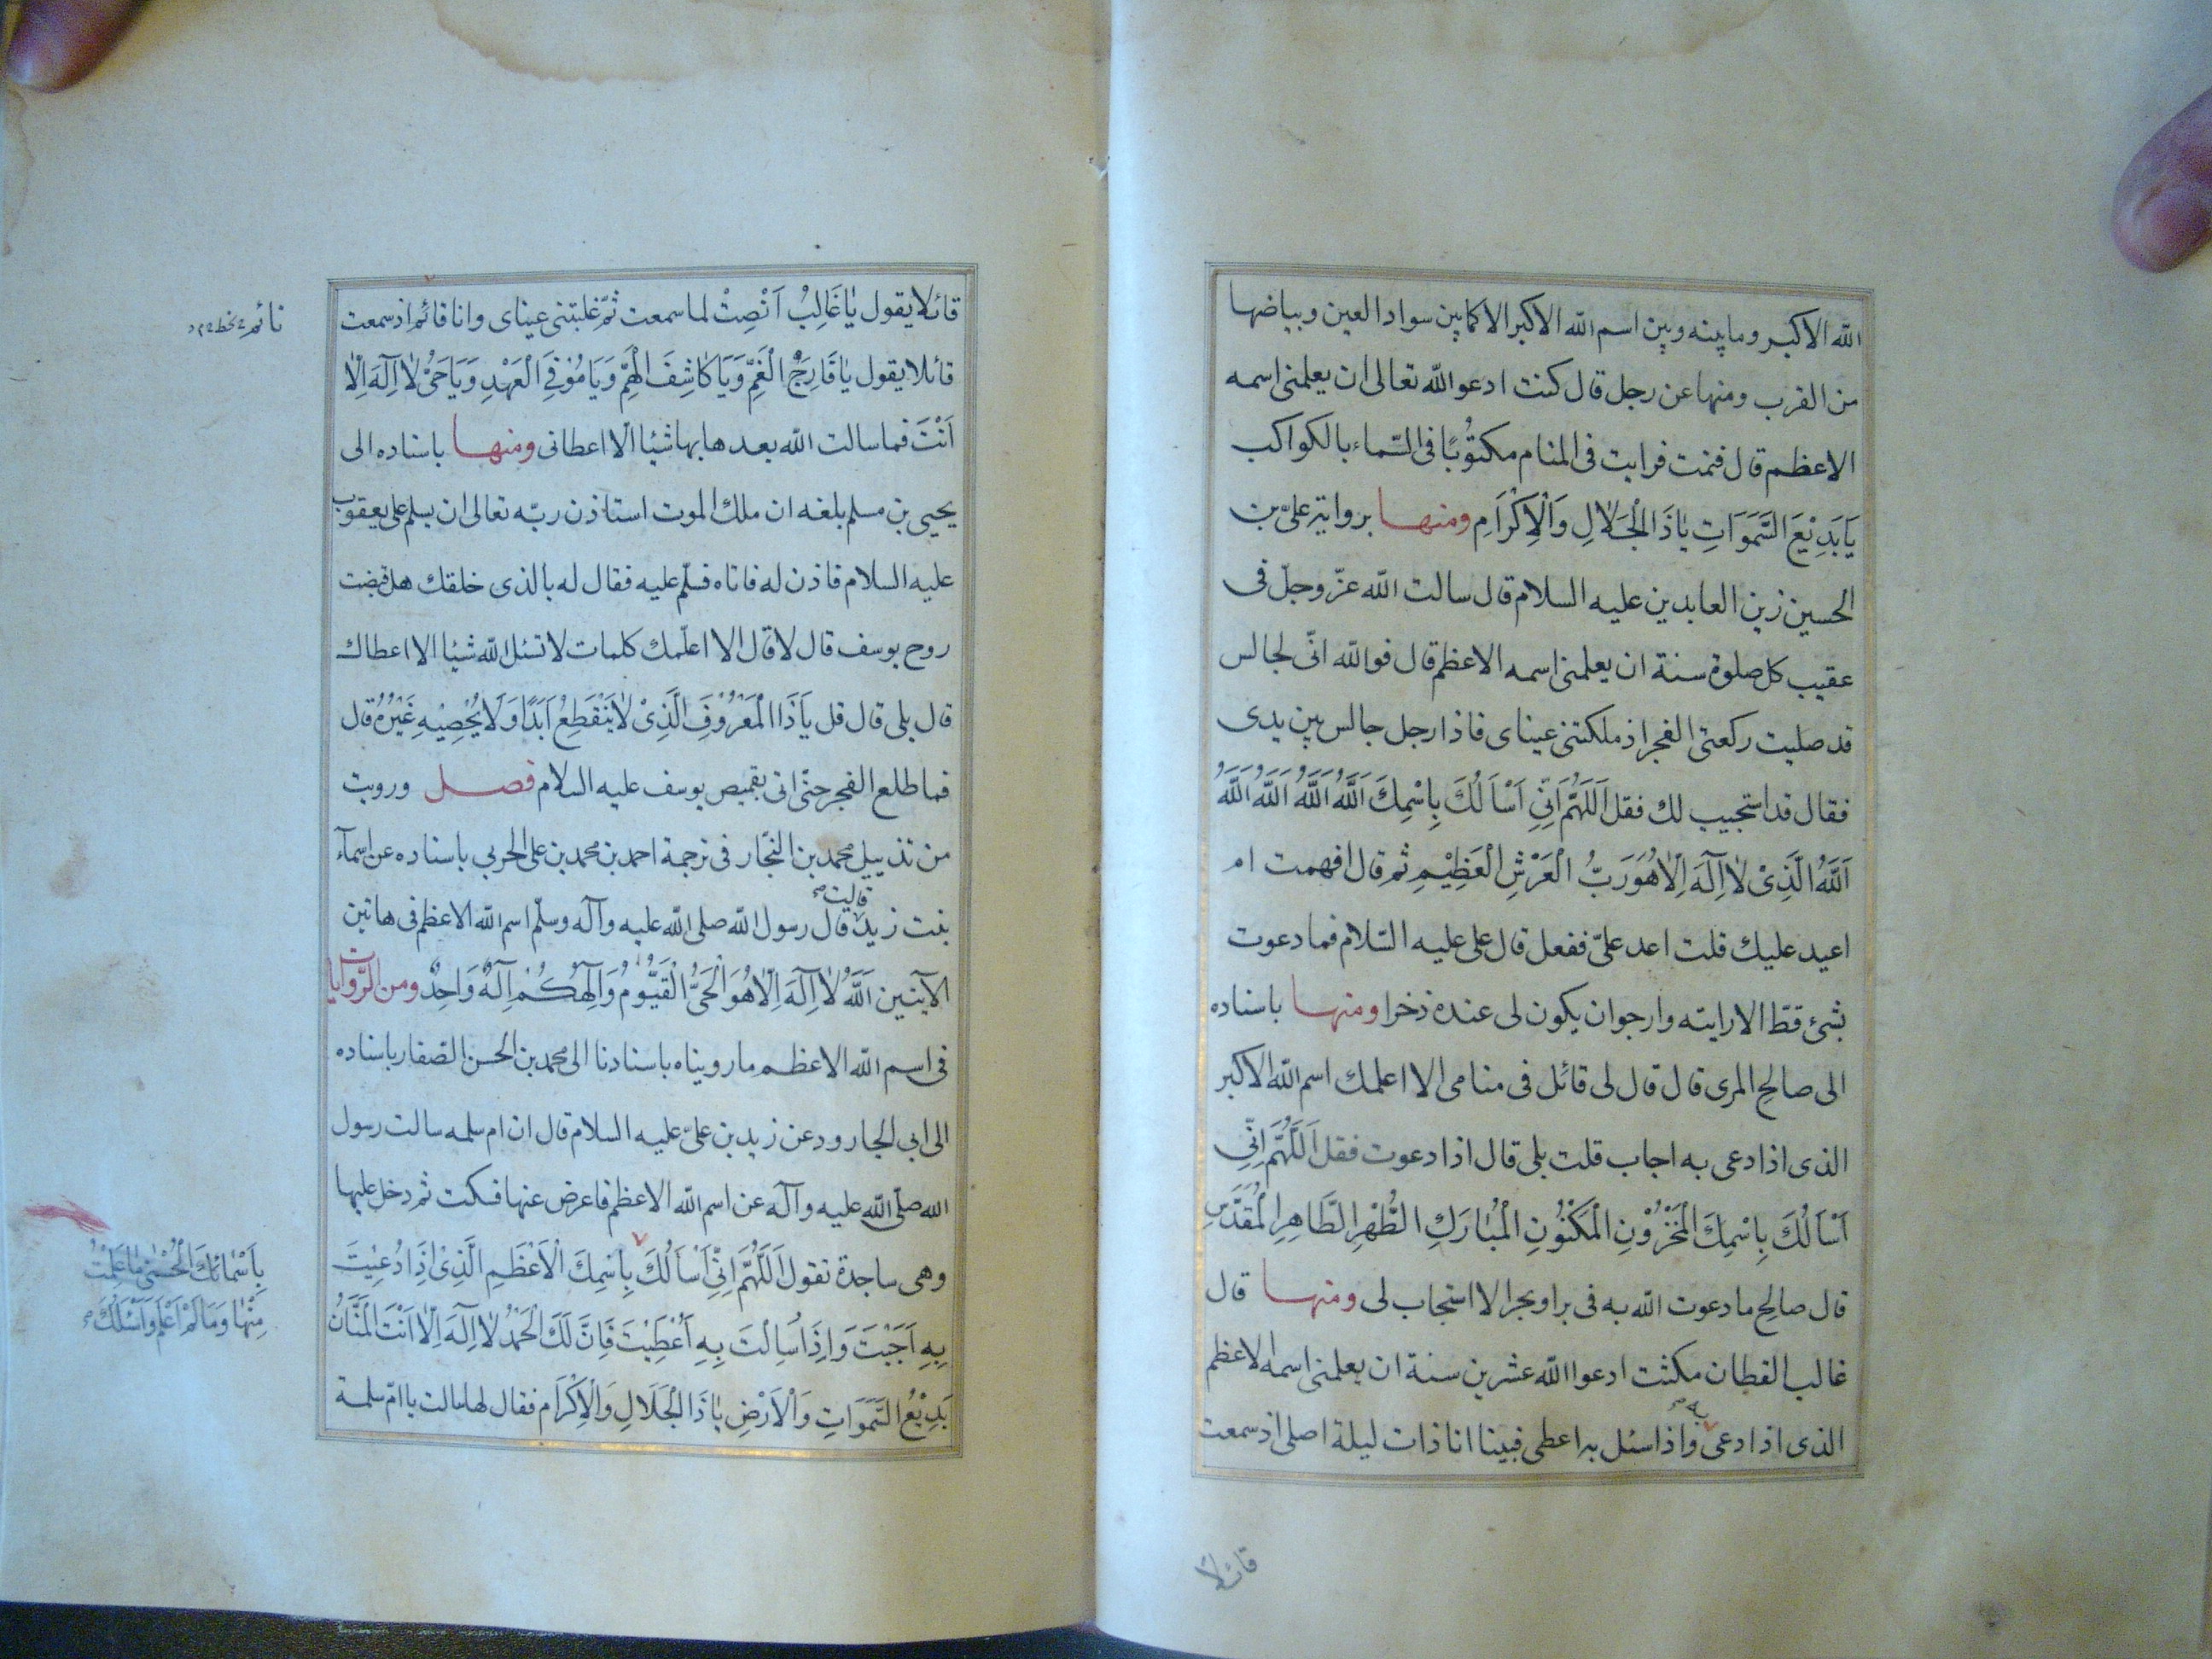 الله الاكبر وما بينه وبين اسم الله الاكبر الا كما بين سواد العين وبياضها
من القرب ومنها عن رجل قال كنت ادعو الله تعالى ان يعلمنى اسمه
الاعظم قال فنمت فرايت فى المنام مكتُوبًا فى السّماء بالكواكب
يَا بَدِيْعَ السَّمَوَاتِ يَا ذَا الْجَلَالِ وَالْاِكْرَامِ ومنهـا برواية علىّ بن
الحسين زين العابدين عليه السلام قال سالت الله عزّ وجلّ فى
عقيب كل صلوة سنة ان يعلمنى اسمه الاعظم قال فوالله انّى لجالس
قد صليت ركعتى الفجر اذ ملكتنى عيناى فاذا رجل جالس بين يدى
فقال قد استجيب لك فقل اَللّٰهُمَّ اِنِّى اَسْاَلُكَ بِاِسْمِكَ اَللّٰهُ اَللّٰهُ اَللّٰهُ اَللّٰهُ
اَللّٰهُ الَّذِىْ لَا اِلٰهَ اِلَّا هُوَ رَبُّ الْعَرْشِ الْعَظِيْمِ ثم قال افهمت ام
اعيد عليك قلت اعد علىّ ففعل قال على عليه السّلام فما دعوت
بشئ قطّ الا رايته وارجو ان يكون لى عنده ذخرا ومنهـا باسناده
الى صالح المرى قال قال لى قائل فى منامى الا اعلمك اسم الله الاكبر
الذى اذا دعى به اجاب قلت بلى قال اذا دعوت فقل اَللّٰهُمَّ اِنِّى
اَسْاَلُكَ بِاِسْمِكَ الْمَخْزُوْنِ الْمَكْنُوْنِ الْمُبَارَكِ الطُّهْرِ الطَّاهِرِ الْمُقَدَّسِ
قال صالح ما دعوت الله به فى بر او بحر الا استجاب لى ومنهـا قال
غالب القطان مكثت ادعوا الله عشرين سنة ان يعلمنى اسمه الاعظم
به صح
الذى اذا دعى واذا سئل به اعطى فبينا انا ذات ليلة اصلى اذ سمعت
قائلا
قائلا يقول يَا غَالِبُ اَنْصِتْ لما سمعت ثمّ غلبتنى عيناى وانا قائم اذ سمعت
نائم
قائلا يقول يَا فَارِجَ الْغَمِّ وَيَا كَاشِفَ الْهَمِّ وَيَا مُوْفِىَ الْعَهْدِ وَيَا حَىُّ لَا اِلٰهَ اِلَّا
اَنْتَ فما سالت الله بعدها بها شيئا الّا اعطانى ومنهـا باسناده الى
يحيى بن مسلم بلغه ان ملك الموت استاذن ربّه تعالى ان يسلم على يعقوب
عليه السلام فاذن له فاتاه فسلّم عليه فقال له بالذى خلقك هل قبضت
روح يوسف قال لا قال الا اعلّمك كلمات لا تسئل الله شيئا الا اعطاك
قال بلى قال قل يَا ذَا الْمَعْرُوْفِ الَّذِىْ لَا يَنْقَطِعُ اَبَدًا وَلَا يُحْصِيْهِ غَيْرُهُ قال
فما طلع الفجر حتّى اتى بقميص يوسف عليه السلام فصـل ورويت
من تذييل محمد بن النجّار فى ترجمة احمد بن محمد بن على الحربي باسناده عن اسمآء
قالت صح
بنت زيد قال رسول الله صلى الله عليه وآله وسلّم اسم الله الاعظم فى هاتين
الآيتين اَللّٰهُ لَا اِلٰهَ اِلَّا هُوَ الْحَىُّ الْقَيُّوْمُ وَاِلٰهُكُمْ اِلٰهٌ وَاحِدٌ ومن الرّوايات
فى اسم الله الاعظم ما رويناه باسنادنا الى محمد بن الحسن الصّفار باسناده
الى ابي الجارود عن زيد بن علىّ عليه السلام قال ان ام سلمه سالت رسول
الله صلّى الله عليه وآله عن اسم الله الاعظم فاعرض عنها فسكت ثم دخل عليها
وهى ساجدة تقول اَللّٰهُمَّ اِنِّى اَسْاَلُكَ بِاِسْمِكَ الْاَعْظَمِ الَّذِىْ اِذَا دُعِيْتَ
بِاَسْمَائِكَ الْحُسْنٰى مَا عَلِمْتُ
مِنْهَا وَمَا لَمْ اَعْلَمْ وَاَسْئَلُكَ
بِهِ اَجَبْتَ وَاِذَا سُئِلْتَ بِهِ اَعْطَيْتَ فَاِنَّ لَكَ الْحَمْدُ لَا اِلٰهَ اِلَّا اَنْتَ الْمَنَّانُ
بَدِيْعُ السَّمَوَاتِ وَالْاَرْضِ يَا ذَا الْجَلَالِ وَالْاِكْرَامِ فقال لها سالت يا امّ سلمة